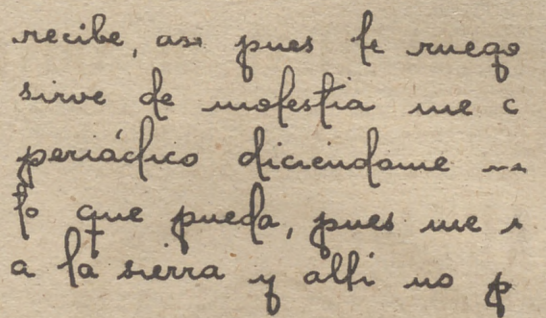 recibe, asi pues le ruego
sirve de molestia me c
periódico diciendome
lo que pueda, pues me
a la sierra y alli no p